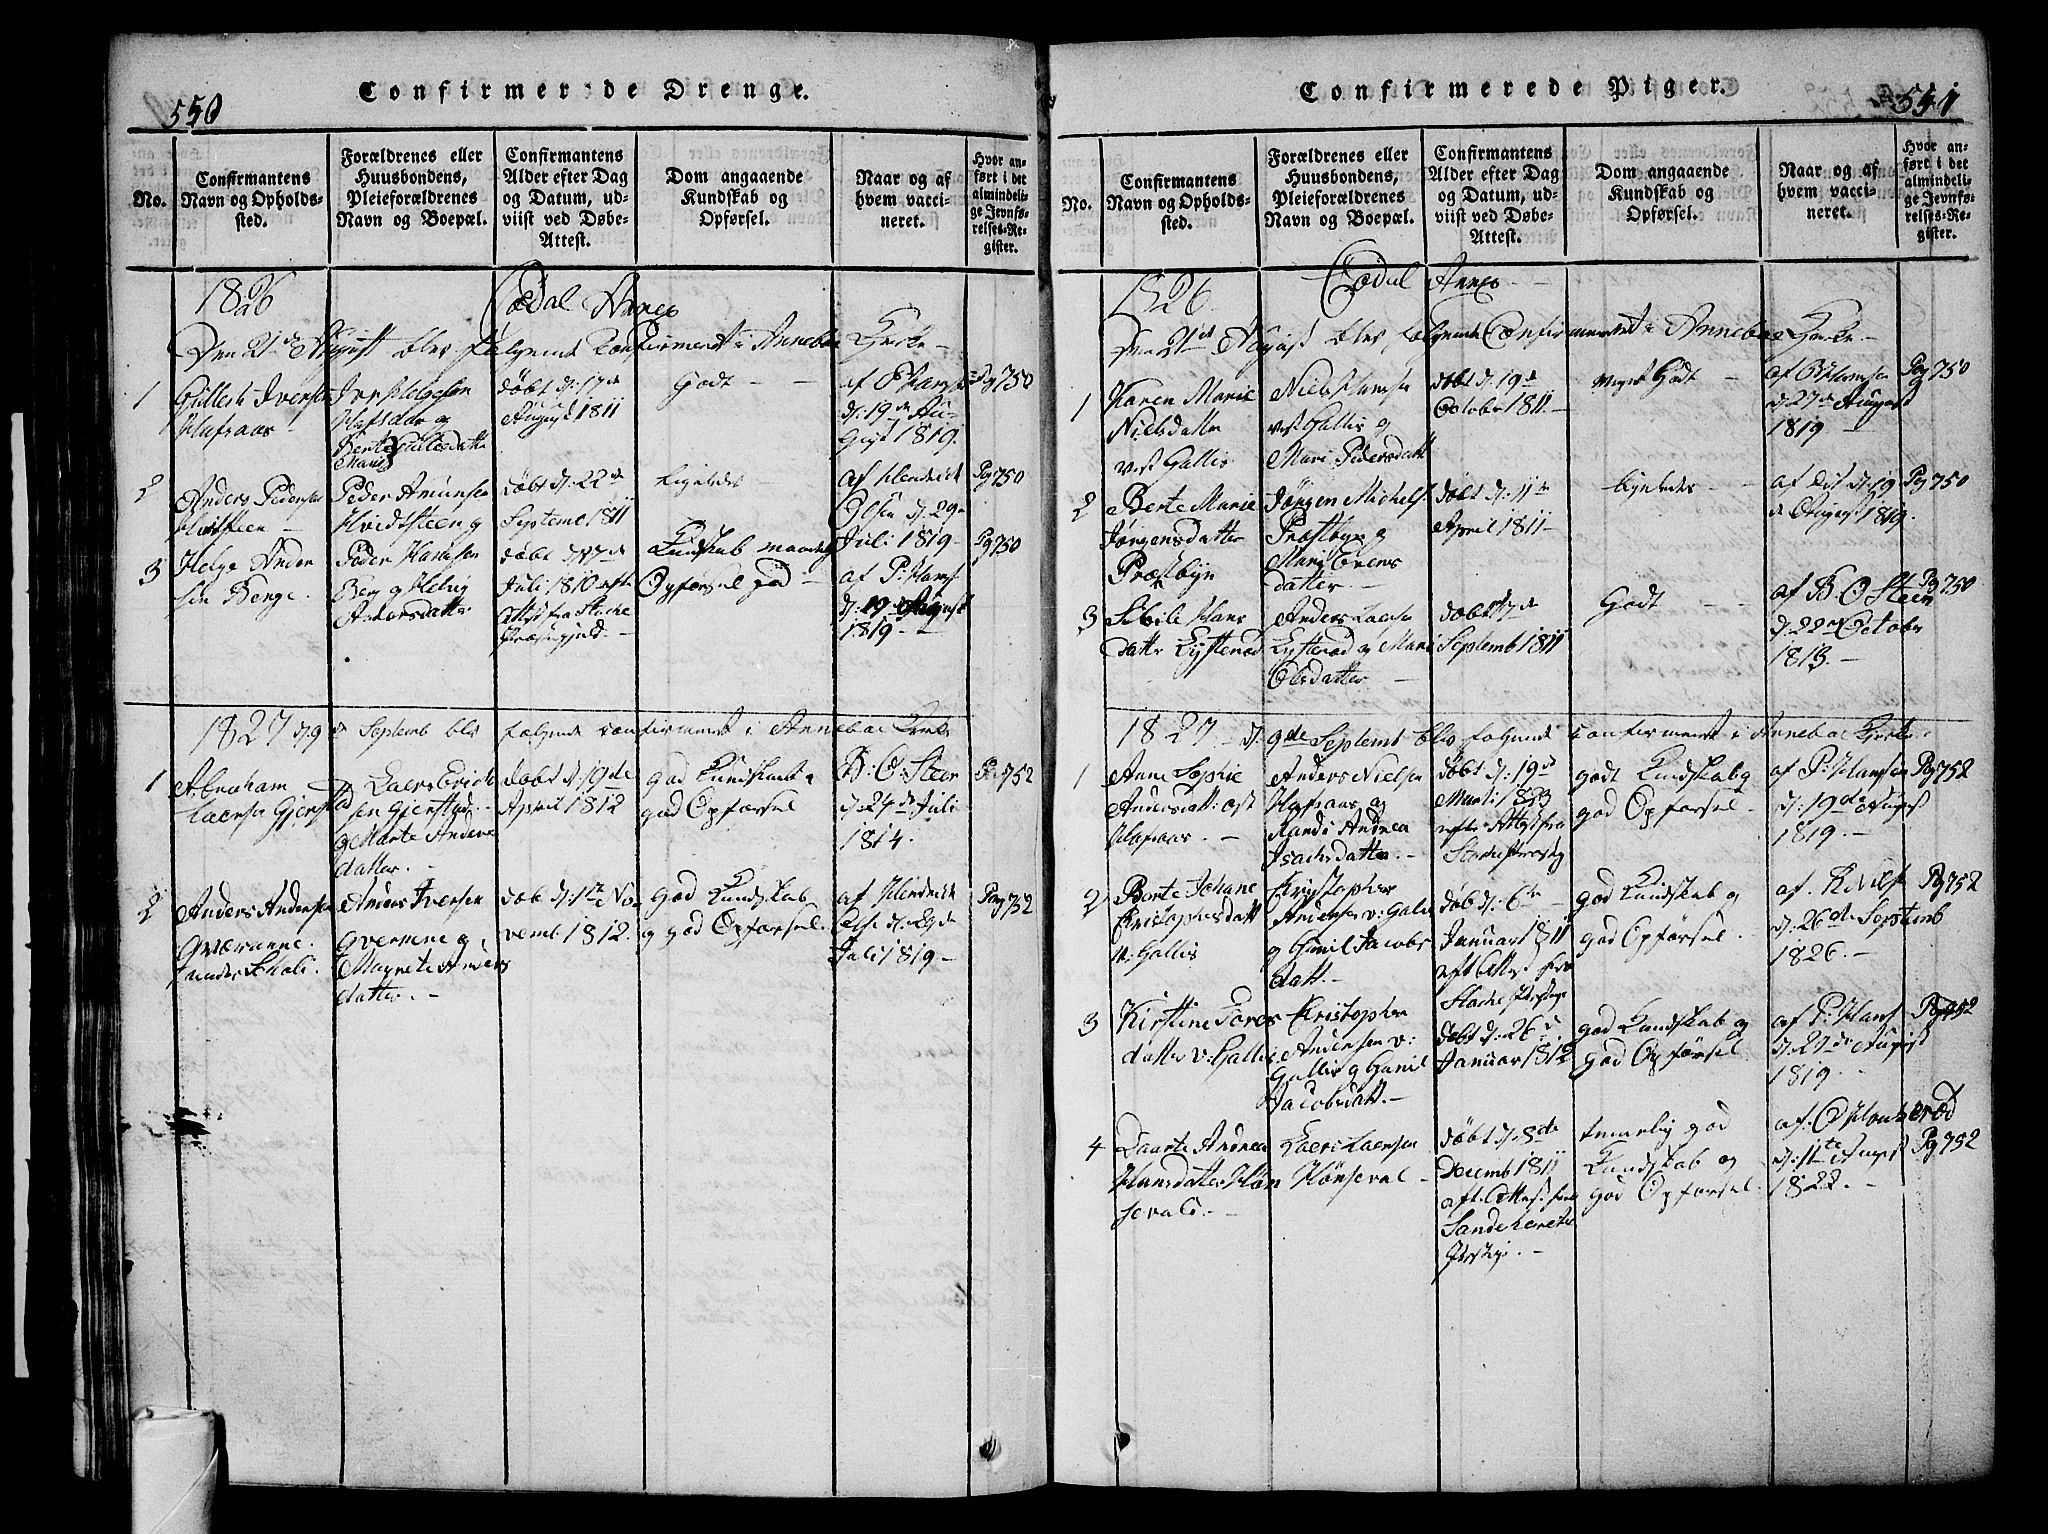 550
Confirmerede Drenge.
No.
Confirmantens
Navn og Opholds-
sted.
Forældrenes eller
Huusbondens,
Pleieforældrenes
Navn og Boepæl.
Confirmantens
Alder efter Dag
og Datum, ud-
viist ved Døbe-
Attest.
Dom angaaende
Kundskab og
Opførsel.
Naar og af
hvem vacci-
neret.
Hvor an-
ført i det
almindeli-
ge Jevnfø-
relses-Re-
gister.
1826 Annex
Den 21de August blev følgende Confirmeret i Annebae Kerke
1
Iversen
Hafraas
Iver Helgesen
og
Berte
Marie
døbt d: 17de
August 1811
Godt
af P Hansen
d: 19de Au-
gust 1819.
Pg 750
2
Anders Pedersen
Peder Amunsen
Hvidsteen og
døbt d: 22de
Septemb 1811
Ligeledes
af Hendrick
Olsen d: 29
Juli 1819
Pg 750
3
Helge Ander
sen Berge
Peder Hansen
Berg og Helvig
Andersdatter
døbt
Juli 1810 efter
Attest fra
Præstegjeld
Kundskab maadelig
Opførsel god
af P: Hans
d: 19de August
1819
Pg 750
1827 d: 9de Septemb blev følgende confirmeret i Annebae Kerke
1
Abraham
Laersen Gjerstad
Laers Erich
sen Gjerstad
og Marte Anders
datter.
døbt d: 19de
April 1812
god Kundskab
god Opførsel
B: O: Steen
d: 24de Juli
1814.
Pag 752
2
Anders Andersen
Anders Iversen
og
Magrete Anders
datter.
døb d: 1te No-
vemb. 1812.
god Kundskab
og god Opførsel.
af Hendrick
Olse d: 29de
Juli 1819
Pag 752
551
Confirmerede Piger.
No.
Confirmantens
Navn og Opholds-
sted.
Forældrenes eller
Huusbondens,
Pleieforældrenes
Navn og Boepæl.
Confirmantens
Alder efter Dag
og Datum, ud-
viist ved Døbe-
Attest.
Dom angaaende
Kundskab og
Opførsel.
Naar og af
hvem vacci-
neret.
Hvor an-
ført i det
almindeli-
ge Jevnfø-
relses-Re-
gister.
1826. Annex
Den 21de August blev følgende Confirmeret i Annebae Kerke
1
Karen Marie
Nielsdatter
vest Gallis
Niels Hansen
vest Gallis og
Mari Pedersdatt
døbt d: 19de
October 1811
meget Godt
af P Hansen
d: 27de August
1819
Pag 750
2
Berte Marie
Jørgensdatter
Præstbyn
Jørgen Michels
Præstbyn og
Mari Evens
datter
døbt d: 11te
April 1811
ligeledes
af Dit d: 19
de August 1819.
Pg 750
3
Sibile Hans
datter Lysterød
Anders Laersen
Lysterød og Mari
Olsdatter
døbt 17de
Septemb 1811
Godt
af B. O Steen
d: 22 October
1813.
Pg 750
1827 d: 9de Septemb blev følgende confirmeret i Annebae Kerke.
1
Anne Sophie
Andersdatt: øst
Hafraas
Anders Nielsen
Hafraas og
Randi Andrea
Isachsdatter
døbt d: 19de
efter Attest fra
godt Kundskab og
god Opførsel
af P: Hansen
d: 19de August
1819.
Pag 752
2
Berte Johane
Christophersdatt
v: Gallis
Christopher
Andersen v: Galis
og Gunil Jacobs
datt.
døb d: 6te
Januar 1811
eft Attest fra
god Kundskab og
god Opførsel
af. R Niels
d: 26de Septemb
1826.
Pg 752
3
Kirstine Tores
datter v: Gallis
Christopher
Andersen v:
Gallis og Gunil
Jacobsdatt.
døbt d: 26de
Januar 1812
god Kundskab og
god Opførsel
af P: Hans
d: 27de August
1819
Pg 752
4
Daarte Andrea
Hansdatter Høn
sevald.
Laers Laersen
Hønseval
døbt d: 8de
Decemb 1811
eft: Attest fra
god
Kundskab og
god Opførsel
af: O
d: 11te August
1822.
Pg 752